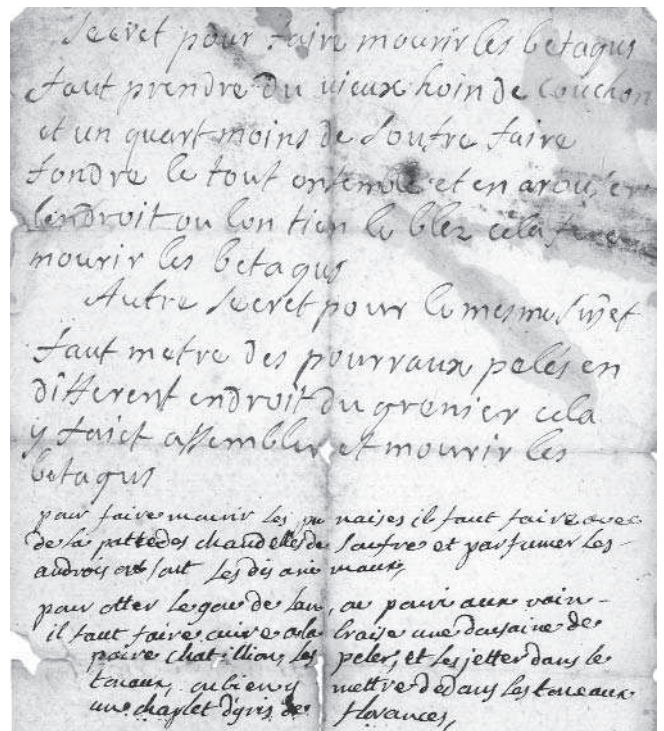 Secret pour faire mourir les betagus
faut prendre du vieux hoin de couchon
et un quart moins de soufre faire
fondre le tout ensemble et en arouser
lendroit ou lon tien le blez cela fera
mourir les betagus
Autre secret pour le mesme sujet
faut metre des pourraux pelés en
different endroit du grenier cela
y faict assembler et mourir les
betagus
pour faire mourir les punaises il faut faire avec
de la patte des chandelles de soufre et parfumer les
androis ou sont les dis animaux,
pour otter le gou de ou pouri aux vain
il faut faire cuire a la braise une dousaine de
poire chatillion, les peler, et les jetter dans le
tonaux, ou bien y mettre dedans les toneaux
un chaplet diris de florances,